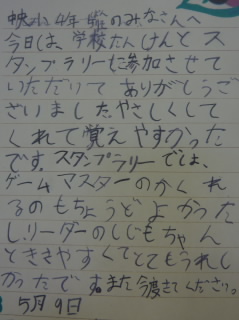 中央小4年のみなさんへ
今日は、学校たんけんとス
タンプラリーに参加させて
いただいてありがとうご
ざいました。やさしくして
くれて覚えやすかった
です。スタンプラリーでは、
ゲームマスターのかくれ
るのもちょうどよかった
し、リーダーのしじもちゃん
とききやすくてとてもうれし
かったです。また今度きてください。
5月9日